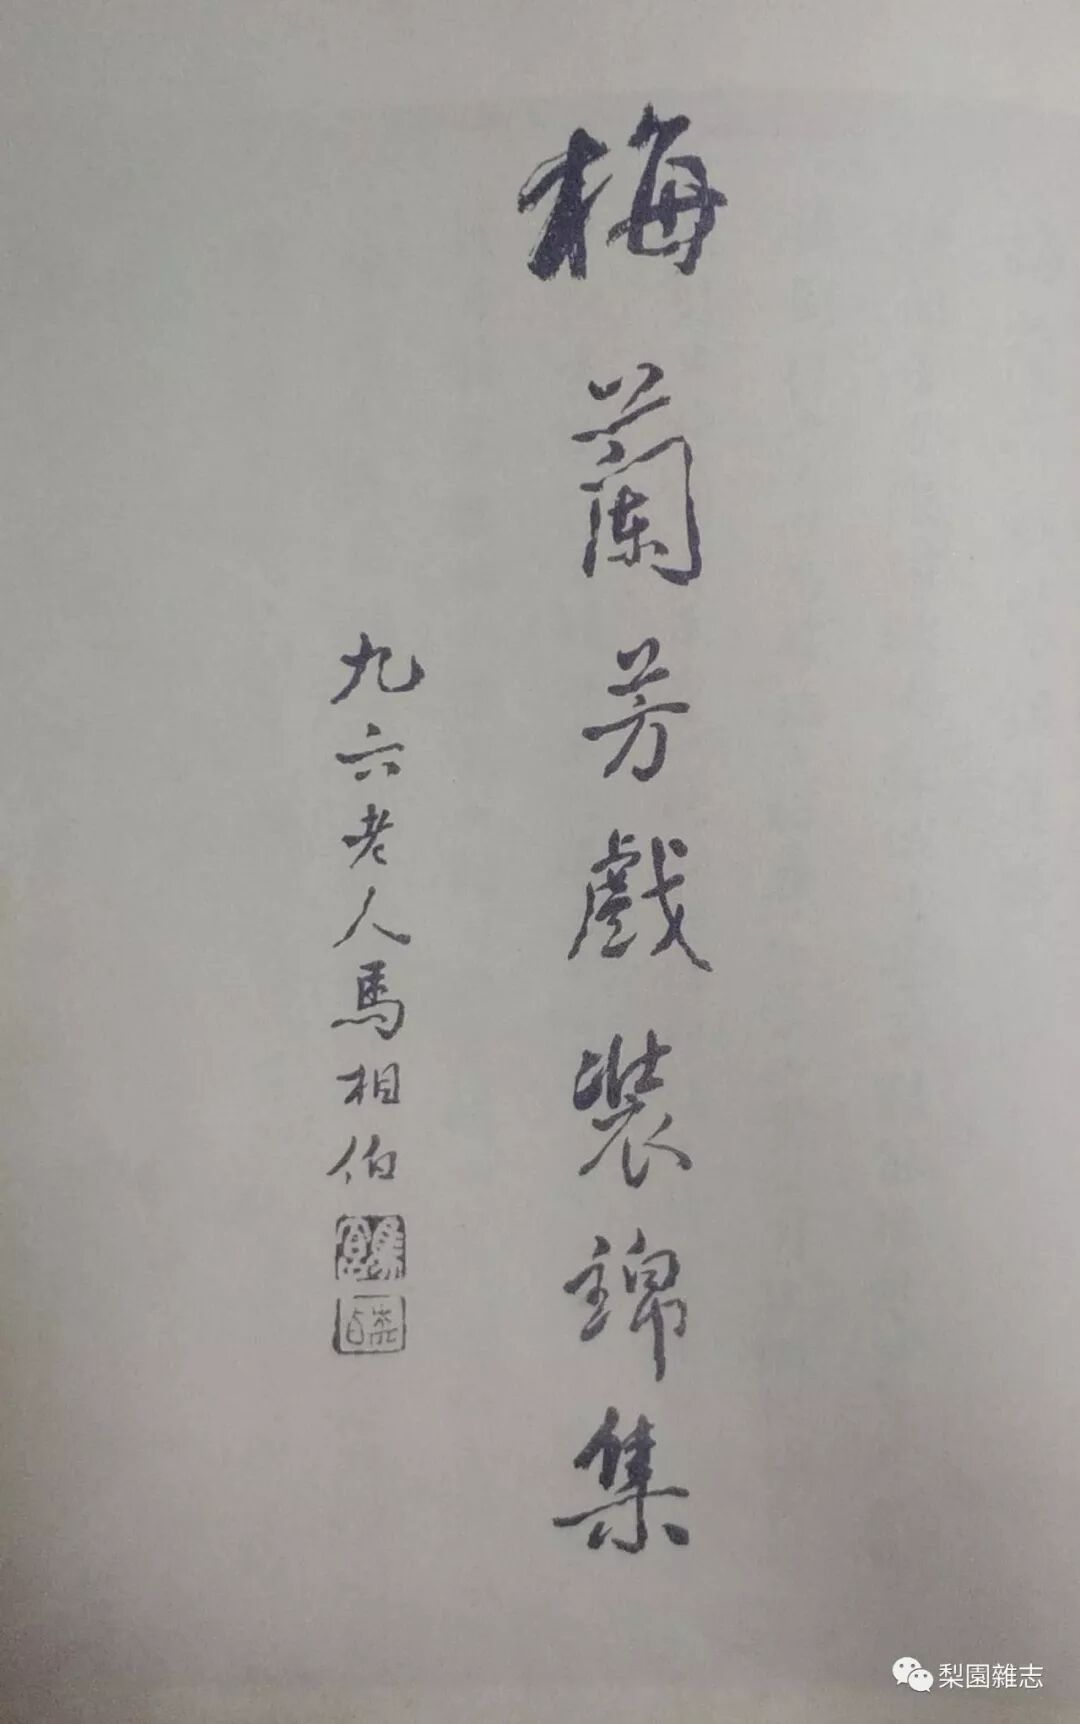 梅蘭芳戲裝錦集
九六老人馬相伯
梨園雜志